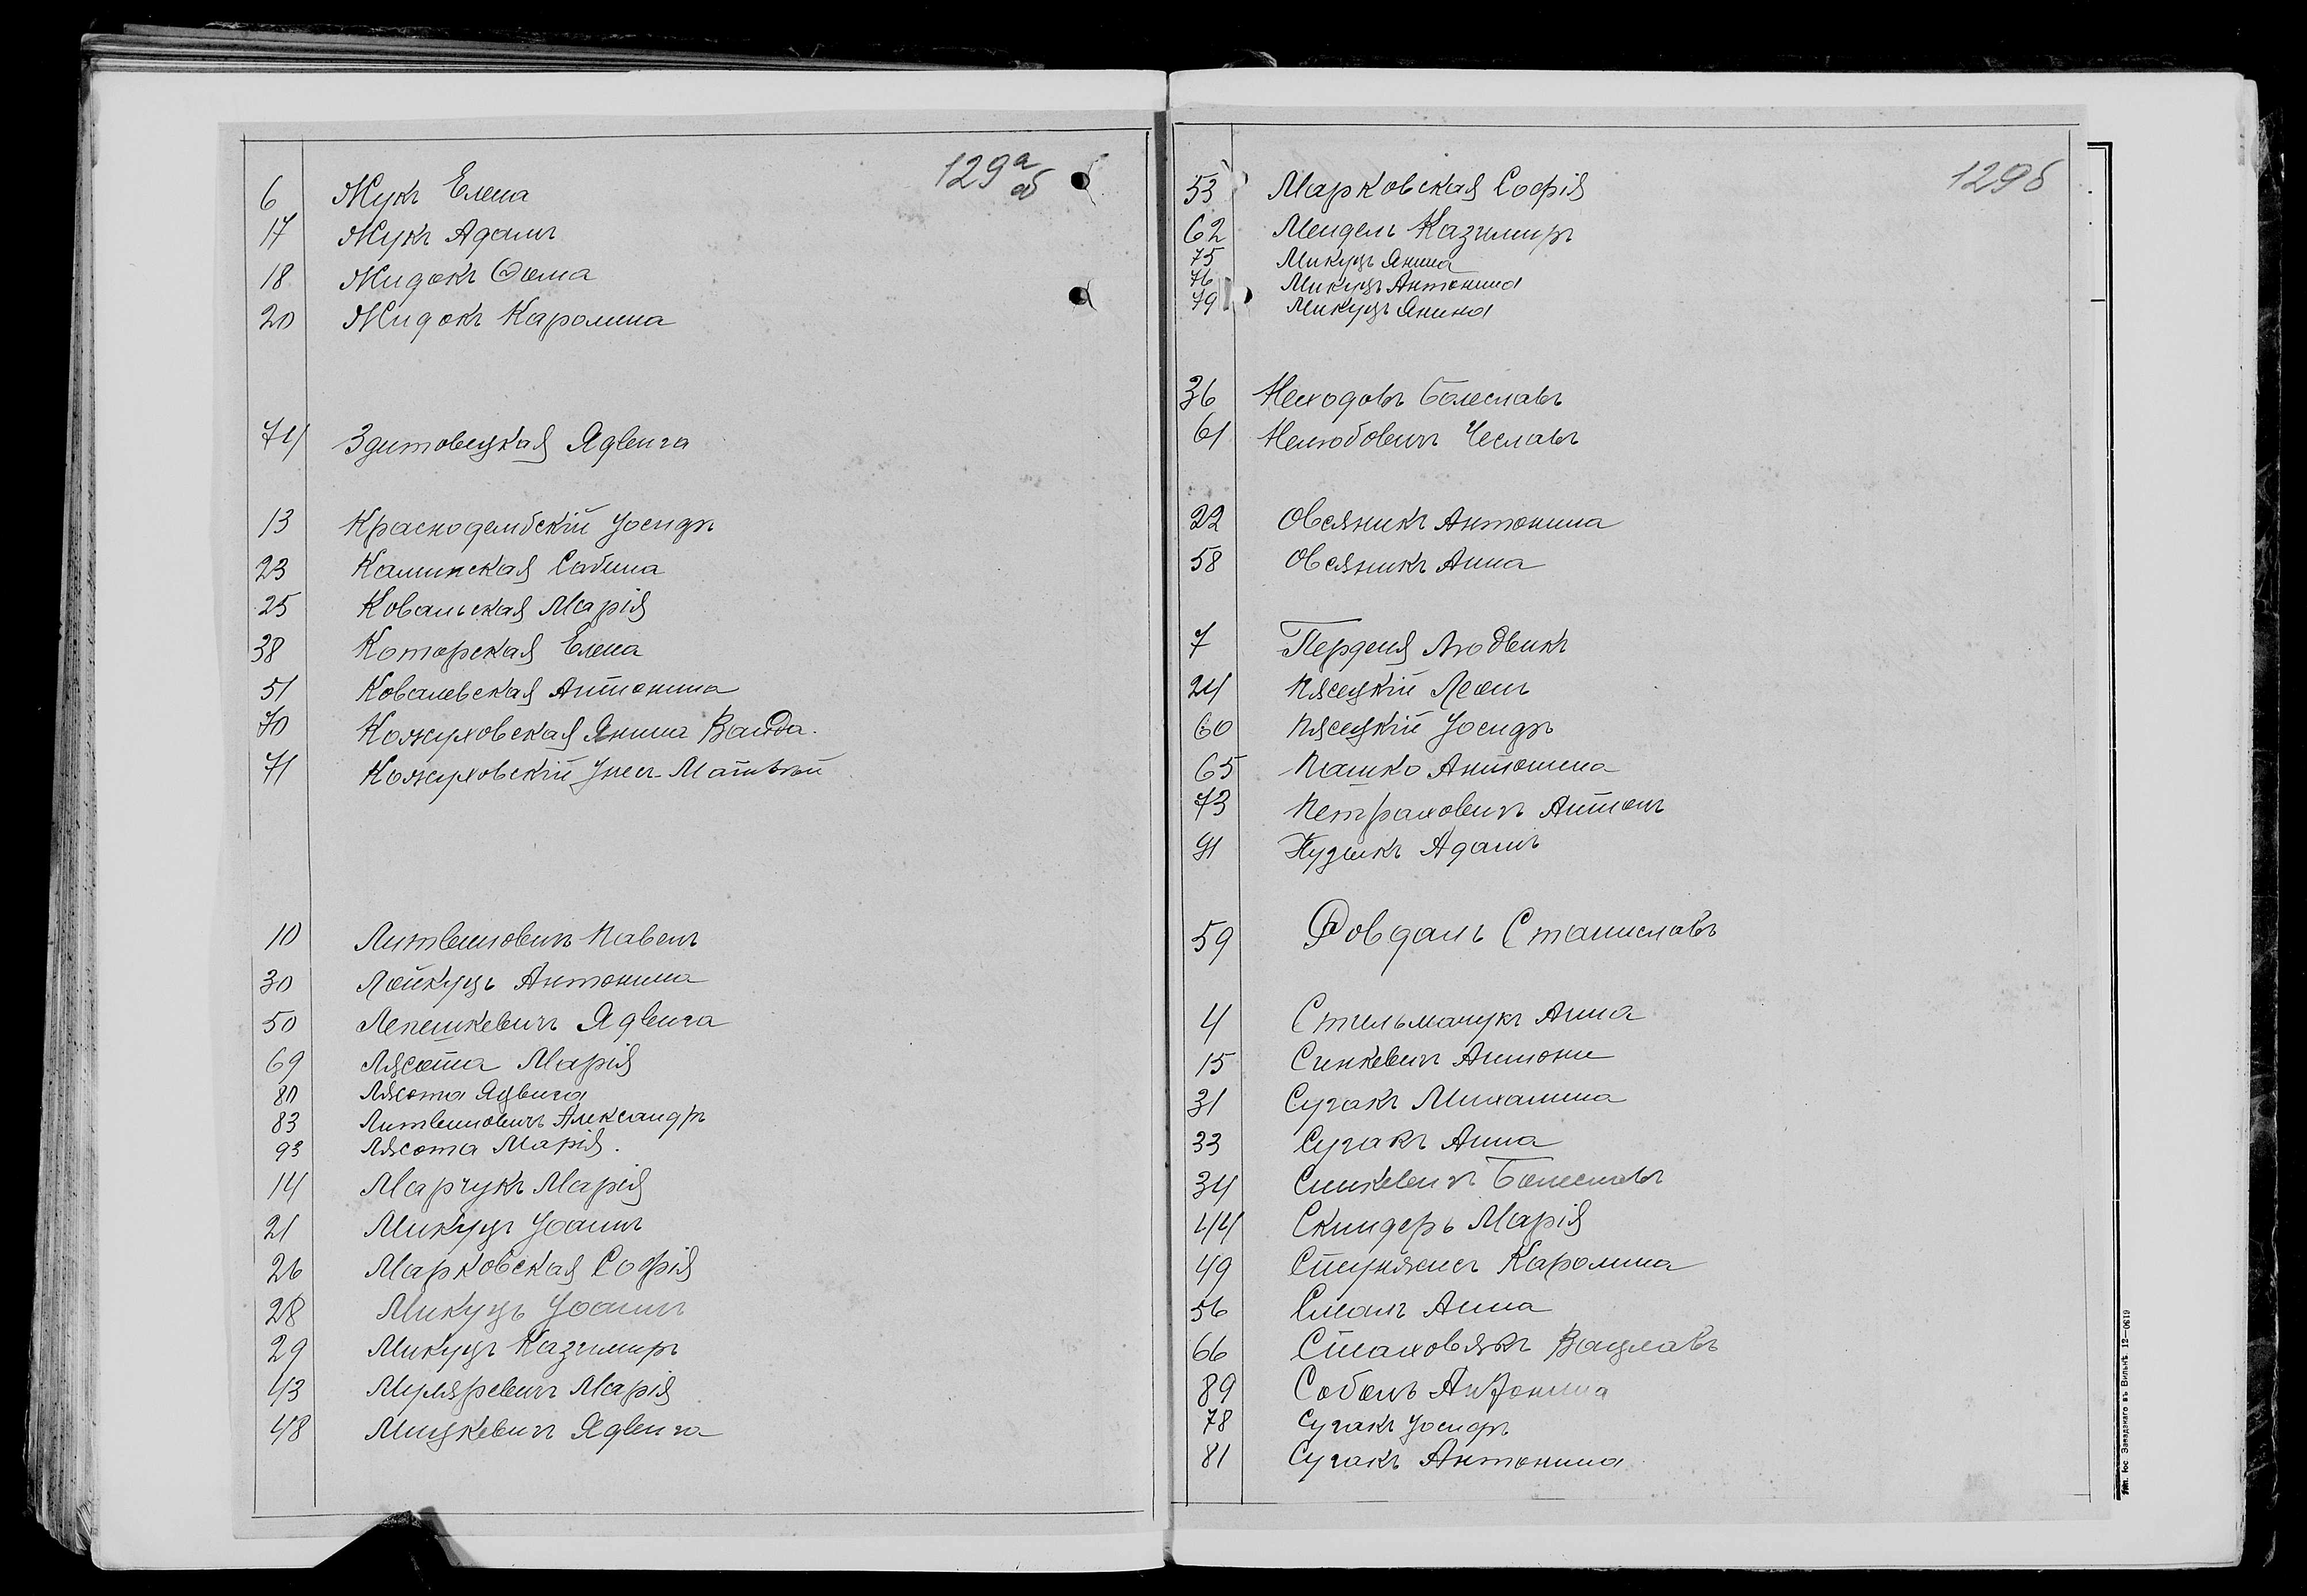 129а об
6 Жукъ Елена
17 Жукъ Адамъ
18 Жидокъ Ѳома
20 Жидокъ Каролина
74 Здитовецкая Ядвига
13 Краснодембскій Іосифъ
23 Калинская Сабина
25 Ковальская Марія
38 Которская Елена
51 Ковалевская Антонина
70 Кожуховская Янина Ванда.
71 Кожуховскій Матвѣй
10 Литвиновичъ Павелъ
30 Лойкуць Антонина
50 Лепешкевичъ Ядвига
69 Лясота Марія
80 Лясота Ядвига
83 Литвиновичъ Александръ
93 Лясота Марія.
14 Марчукъ Марія
21 Микуцъ Іоаннъ
26 Марковская Софія
28 Микуць Іоаннъ
29 Микуцъ Казимиръ
43 Муляревичъ Марія
48 Мицкевичъ Ядвига
129б
53 Марковская Софія
62 Мендель Казимиръ
75 Микуць Янина
76 Микуць Антонина
79 Микуць Янина
36 Неходовъ Болеславъ
61 Нелюбовичъ Чеславъ
22 Овсяникъ Антонина
58 Овсяникъ Анна
7 Перденя Людвикъ
24 Пясецкій Леонъ
60 Пясецкій Іосифъ
65 Пашко Антонина
73 Петраховичъ Антонъ
91 Пузикъ Адамъ
59 Ровдаль Станиславъ
4 Стильмачукъ Анна
15 Синкевичъ Антони
31 Сугакъ Михалина
33 Сугакъ Анна
34 Синкевичъ Болеславъ
44 Скиндерь Марія
49 Каролина
56 Анна
66 Стаховякъ Вацлавъ
89 Соболь Антонина
78 Сугакъ Іосифъ
81 Сугакъ Антонина
Тип. Іос. Завадзкаго въ Вильнѣ. 12—0619